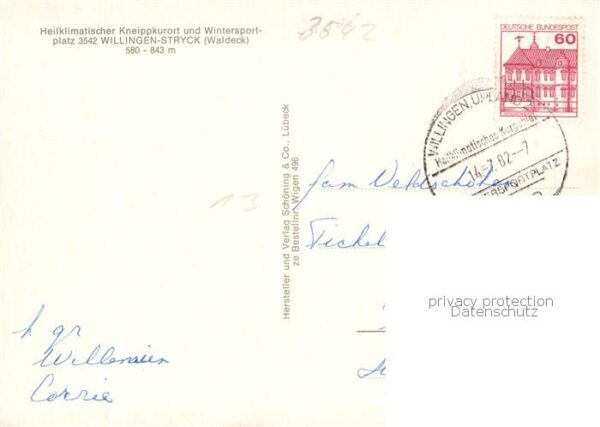 Heilklimatischer Kneippkurort und Wintersport-
platz 3542 WILLINGEN-STRYCK (Waldeck)
580 - 843 m
3542
DEUTSCHE BUNDESPOST
60
WILLINGEN, UPLAND
Heilklimatisches Kurz
14.-7.82--7
RSPORTPLATZ
13
Hersteller und Verlag Schöning & Co., Lübeck
ze Bestellnr. Wigen 496
fam Veldschöten
Tichel
h gr
Willemien
Corrie
privacy protection
Datenschutz